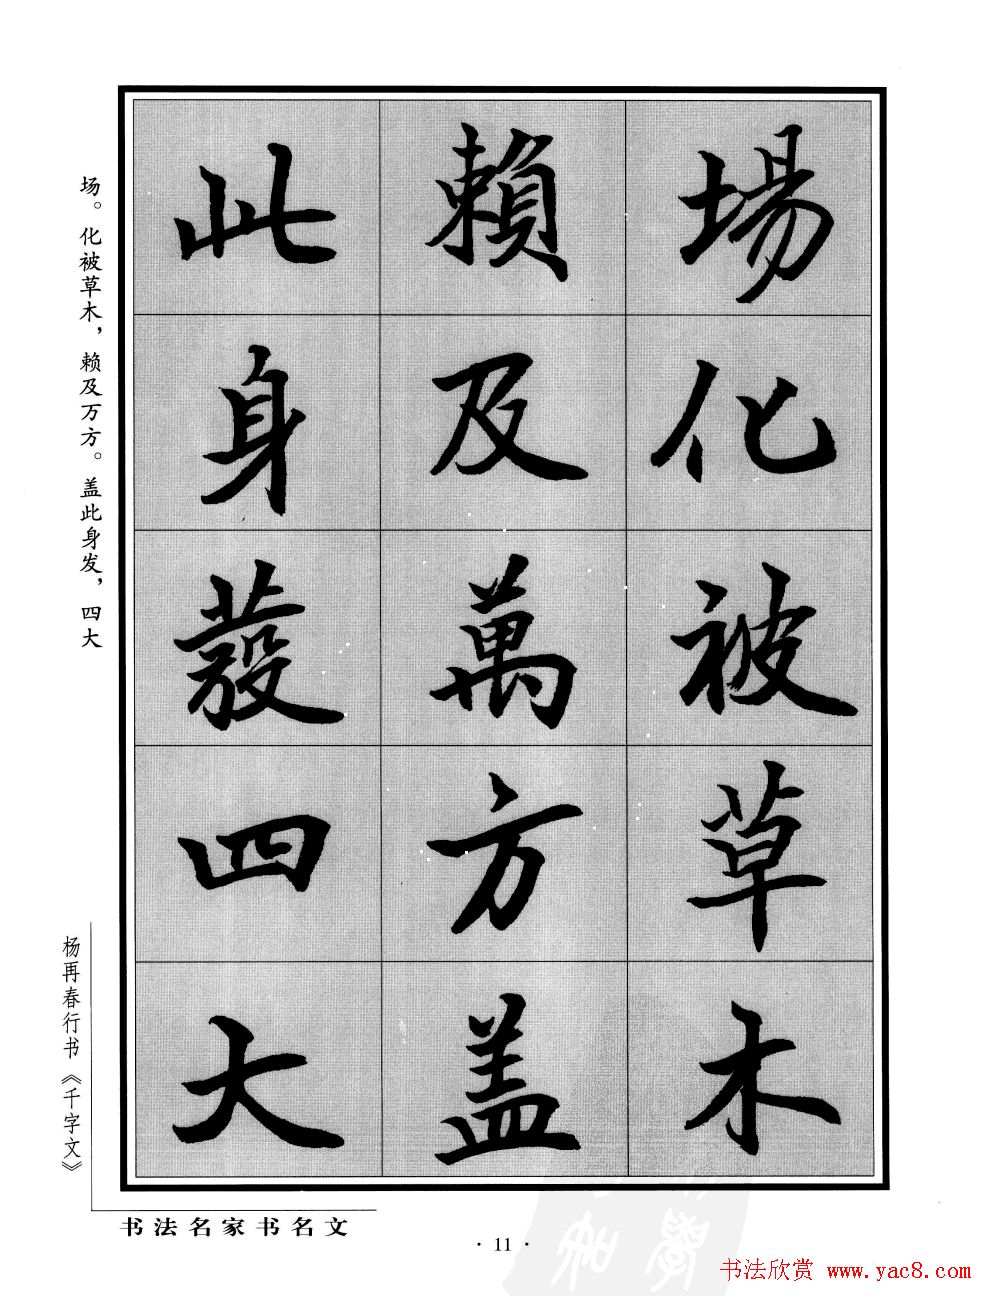 場化被草木
賴及萬方盖
此身發四大
场。化被草木，赖及万方。盖此身发，四大
杨再春行书《千字文》
书法名家书名文
·11·
书法欣赏 www.yac8.com